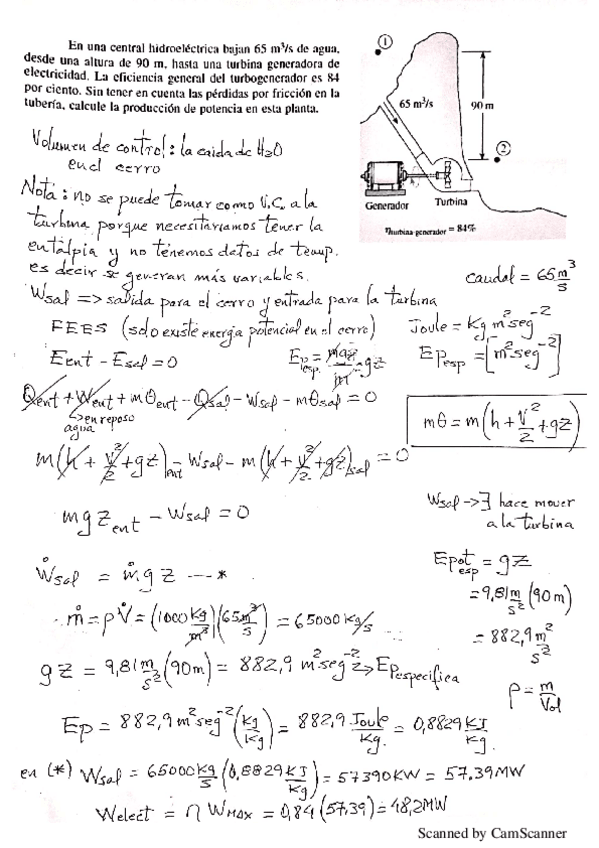 En una central hidroeléctrica bajan 65 m³/s de agua,
desde una altura de 90 m, hasta una turbina generadora de
electricidad. La eficiencia general del turbogenerador es 84
por ciento. Sin tener en cuenta las pérdidas por fricción en la
tubería, calcule la producción de potencia en esta planta.
1
65 m³/s
90 m
2
Generador Turbina
ηturbina-generador = 84%
Volumen de control: la caida de H2O
en el cerro
Nota: no se puede tomar como V.C. a la
turbina porque necesitariamos tener la
entalpia y no tenemos datos de temp.
es decir se generan más variables.
caudal = 65 m³/s
Wsal => salida para el cerro y entrada para la turbina
FEES (solo existe energia potencial en el cerro)
Joule = Kg m² seg⁻²
Eent - Esal = 0
Ep esp. = mgz/m = gz
EPesp = [m² seg⁻²]
Qent + Went + mθent - Qsal - Wsal - mθsal = 0
↳ en reposo
agua
mθ = m(h + V²/2 + gz)
m(h + V²/2 + gz)ent - Wsal - m(h + V²/2 + gz)sal = 0
Wsal -> hace mover
a la turbina
mgZent - Wsal = 0
Epot esp = gz
= 9,81 m/s² (90m)
= 882,9 m²/s²
Ẇsal = ṁ g z --- *
ṁ = ρV̇ = (1000 Kg/m³)(65 m³/s) = 65000 Kg/s
gz = 9,81 m/s² (90m) = 882,9 m² seg⁻² → EPespecifica
ρ = m/Vol
Ep = 882,9 m² seg⁻² (Kg/Kg) = 882,9 Joule/Kg. = 0,8829 KJ/Kg.
en (*) Wsal = 65000 Kg/s (0,8829 KJ/Kg) = 57390 KW = 57.39 MW
Welect = η WMAX = 0,84 (57,39) = 48,2 MW
Scanned by CamScanner